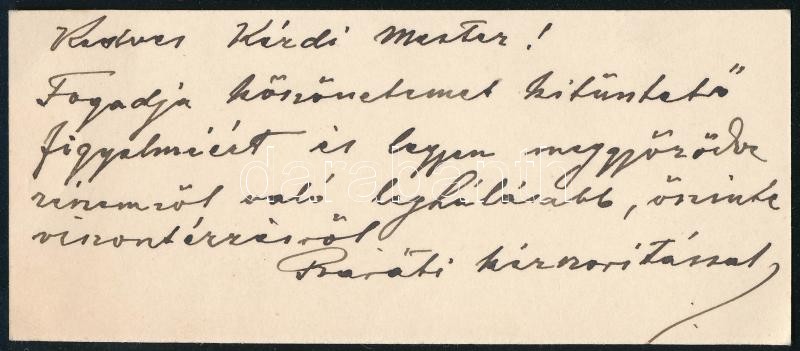 Kedves Kérdi Mester!
Fogadja köszönetemet kitüntető
figyelméért és legyen meggyőződve
részemről való leghálásabb, őszinte
viszontérzésről
Baráti kézszorítással
darabanth